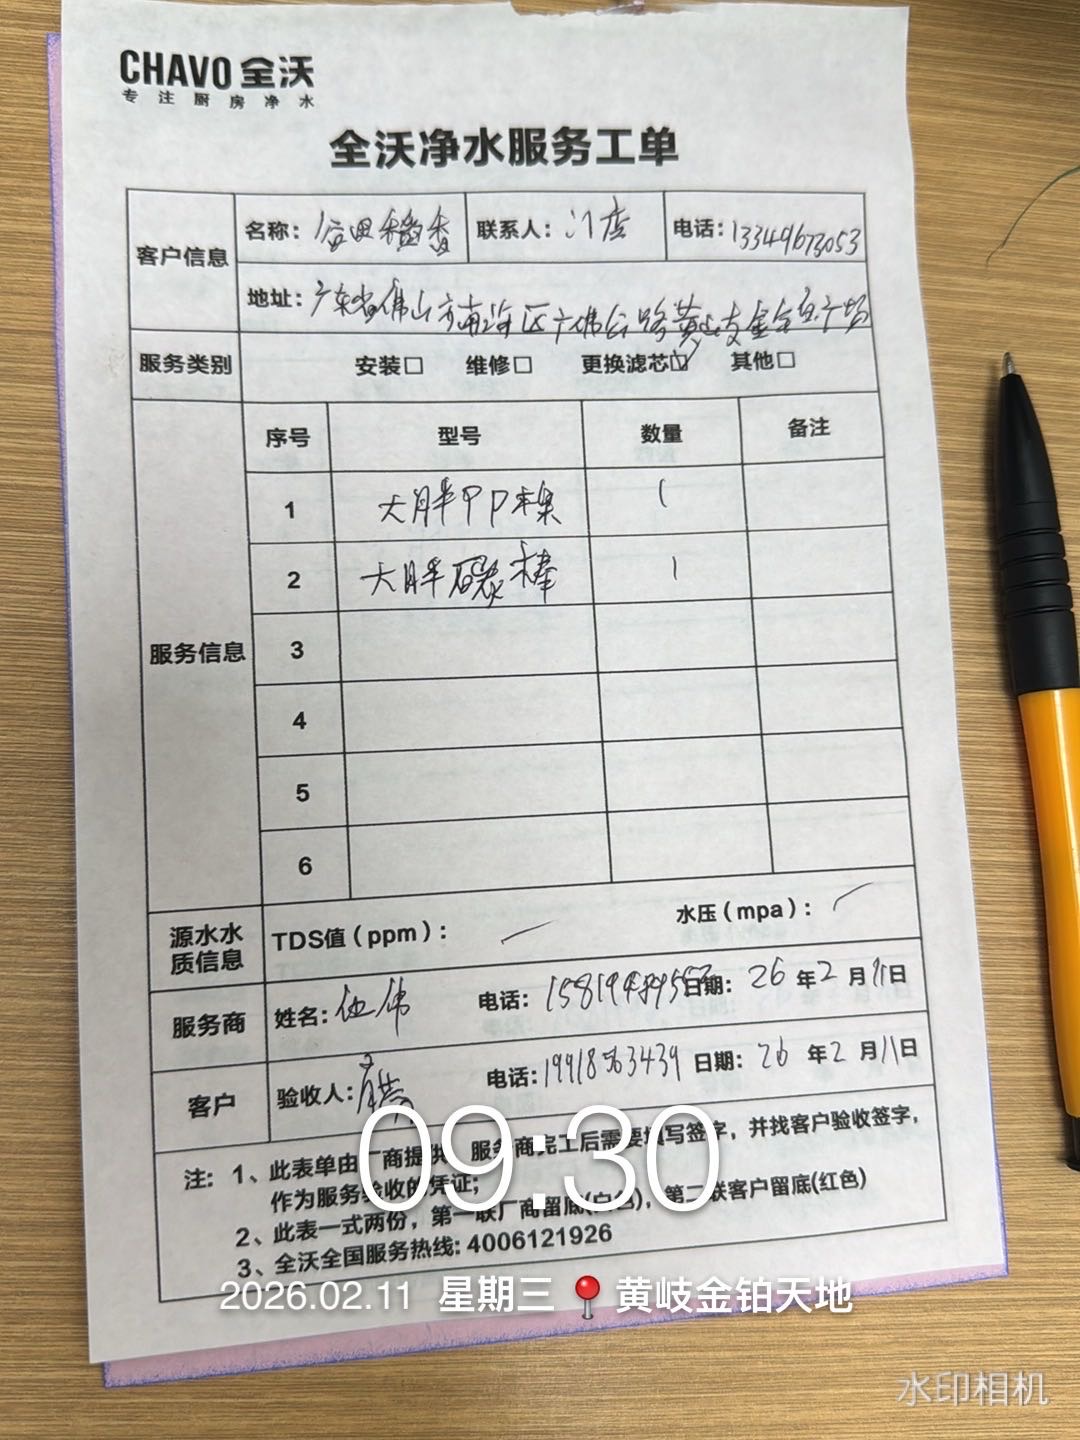 CHAVO 全沃
专注厨房净水
全沃净水服务工单
客户信息 名称: 谷田稻香 联系人: 门店 电话: 13349673053
地址: 广东省佛山市南海区广佛公路黄岐金铂广场
服务类别 安装□ 维修□ 更换滤芯☑ 其他□
服务信息 序号 型号 数量 备注
1 大胖PP棉 1
2 大胖碳棒 1
3
4
5
6
源水水质信息 TDS值(ppm): 水压(mpa):
服务商 姓名: 电话: 日期: 26年2月11日
客户 验收人: 电话: 19918563439 日期: 26年2月11日
注: 1、此表单由厂商提供,服务商完工后需要填写签字,并找客户验收签字,
作为服务验收的凭证;
2、此表一式两份,第一联厂商留底(白色),第二联客户留底(红色)
3、全沃全国服务热线: 4006121926
09:30
2026.02.11 星期三 📍黄岐金铂天地
水印相机